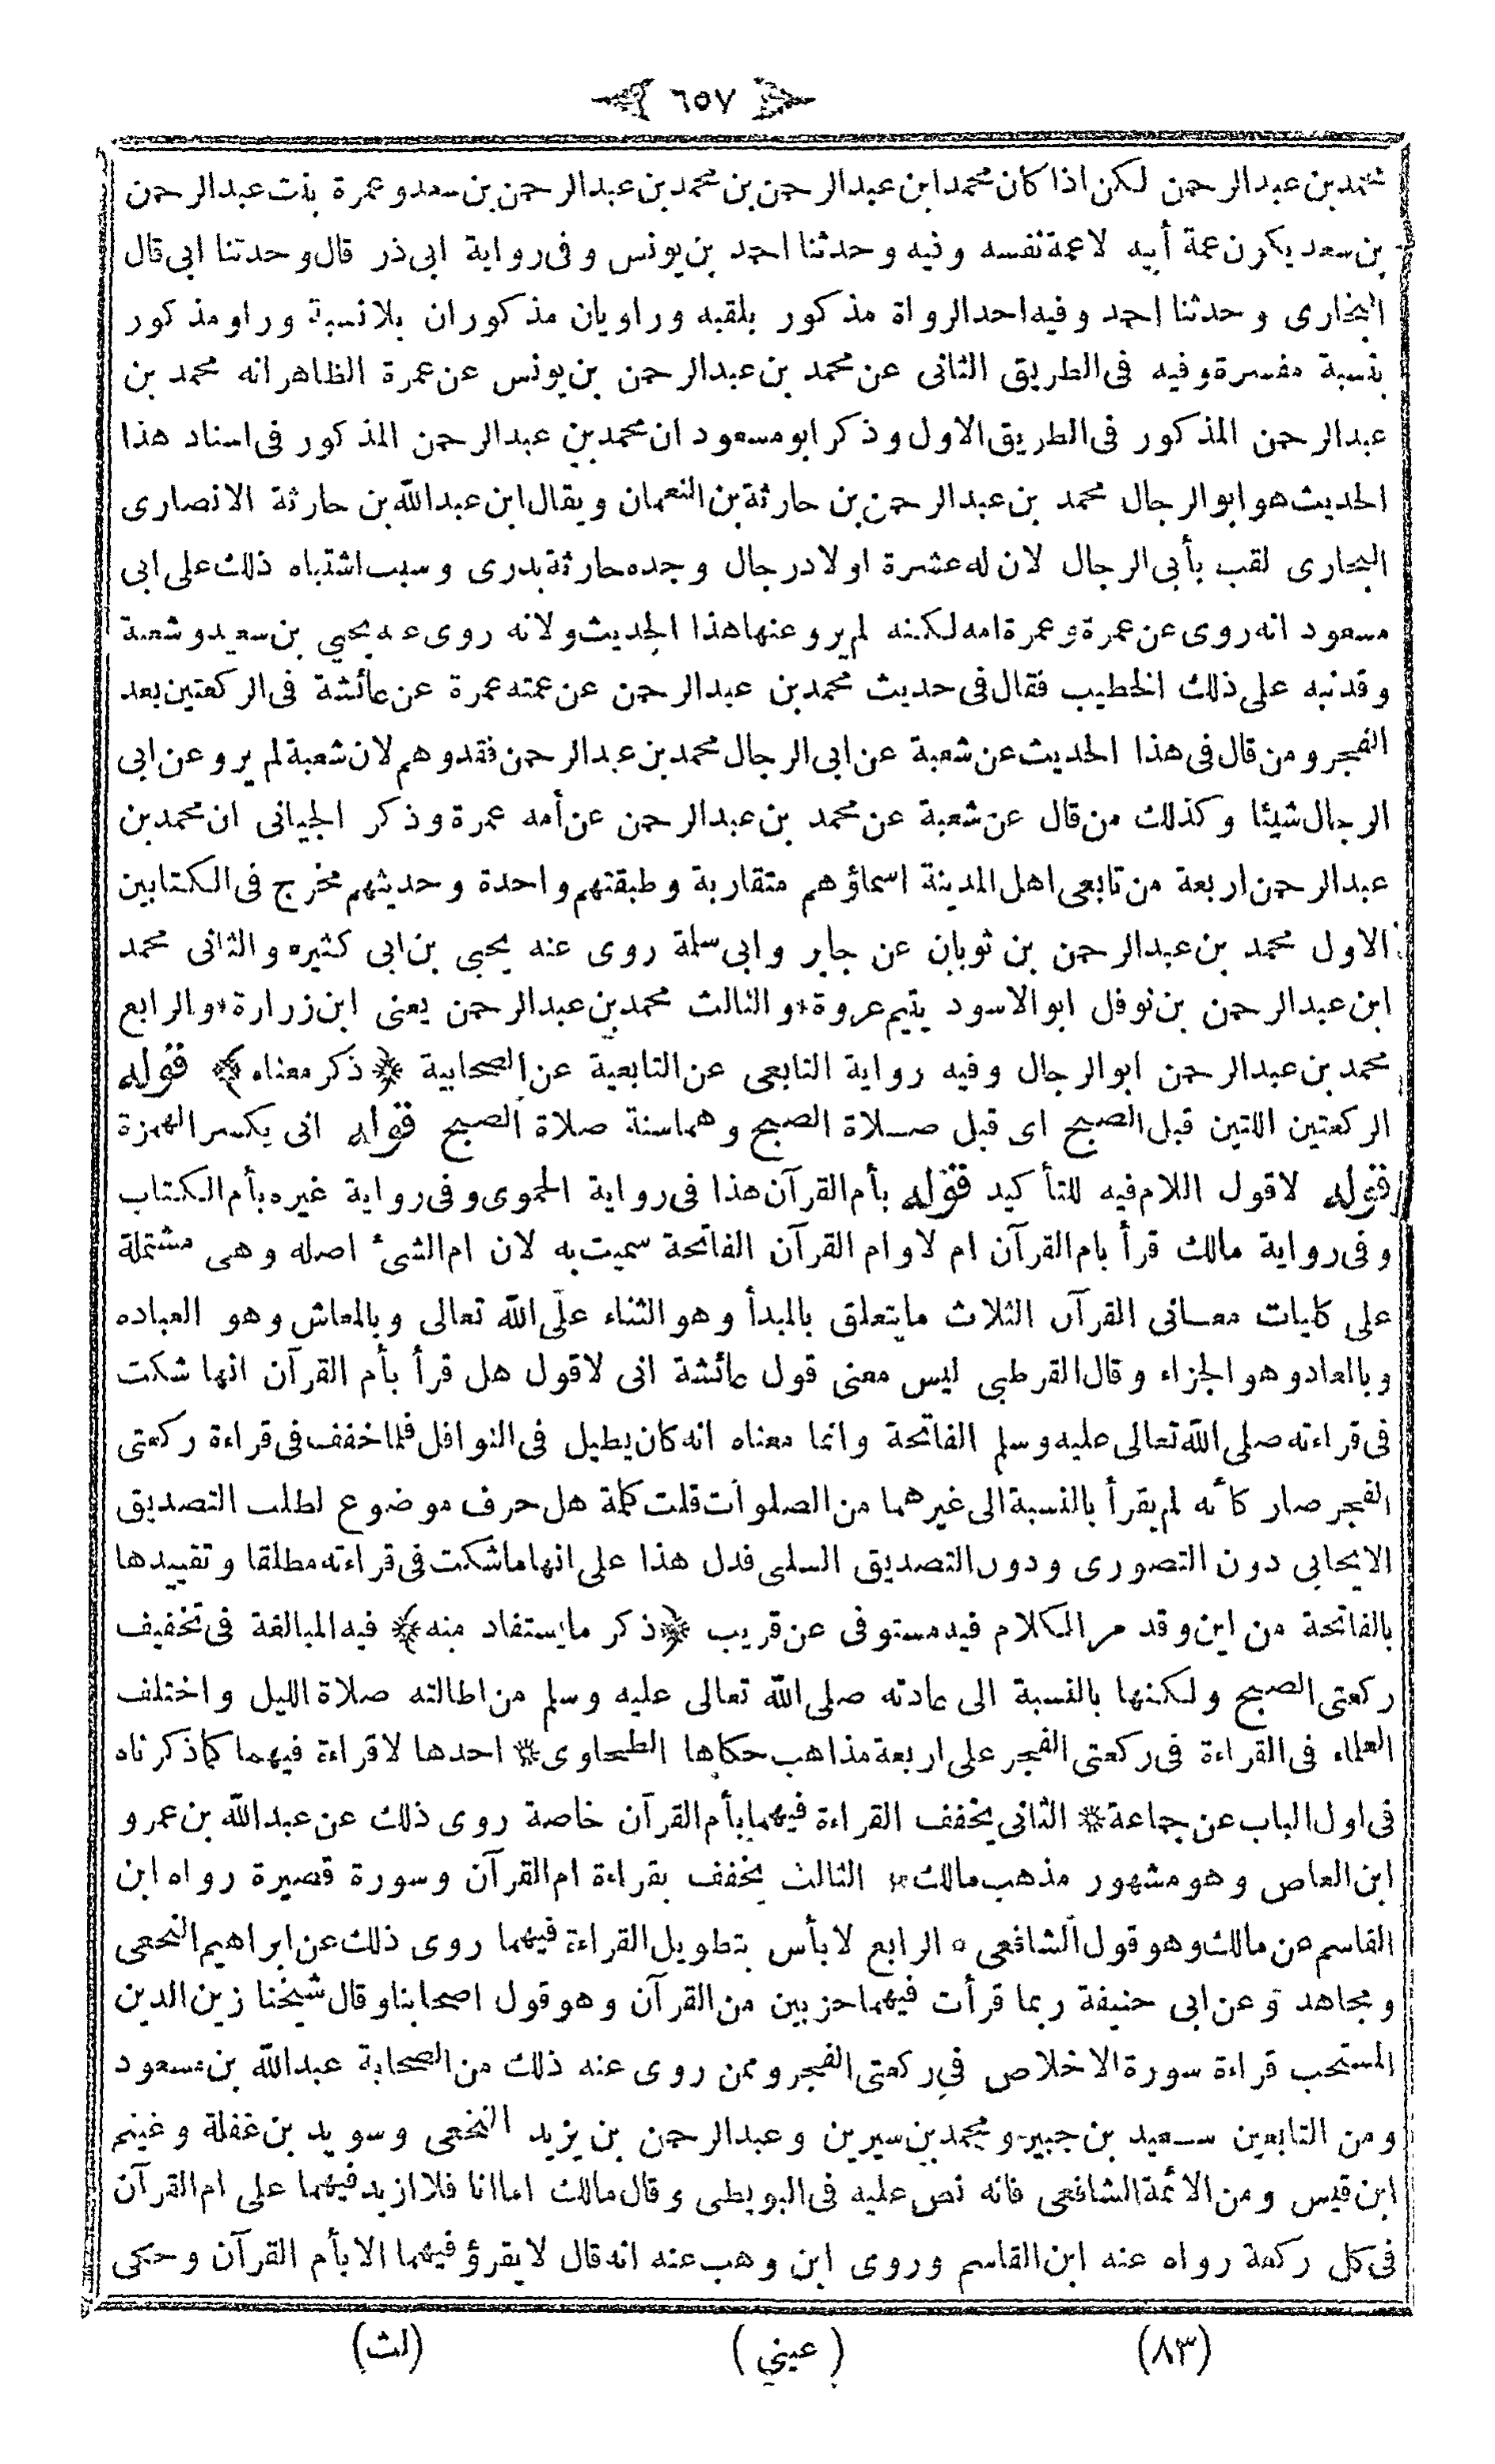 ٦٥٧
محمد بن عبدالرحمن لكن اذا كان محمد ابن عبدالرحمن بن محمد بن عبدالرحمن بن سعد وعمرة بنت عبدالرحمن
بن سعد يكون عمة أبيه لا عمة نفسه وفيه وحدثنا احمد بن يونس وفى رواية ابى ذر قال وحدثنا ابى قال
البخارى وحدثنا احمد وفيه احد الرواة مذكور بلقبه وراويان مذكوران بلا نسبة وراو مذكور
بنسبة مفسرة وفيه فى الطريق الثانى عن محمد بن عبدالرحمن بن يونس عن عمرة الظاهر انه محمد بن
عبدالرحمن المذكور فى الطريق الاول وذكر ابو مسعود ان محمد بن عبدالرحمن المذكور فى اسناد هذا
الحديث هو ابو الرجال محمد بن عبدالرحمن بن حارثة بن النعمان ويقال ابن عبدالله بن حارثة الانصارى
البخارى لقب بأبى الرجال لان له عشرة اولاد رجال وجده حارثة بدرى وسبب اشتباه ذلك على ابى
مسعود انه روى عن عمرة وعمرة امه لكنه لم يرو عنها هذا الحديث ولانه روى عنه يحيى بن سعيد وشعبة
وقد نبه على ذلك الخطيب فقال فى حديث محمد بن عبدالرحمن عن عمته عمرة عن عائشة فى الركعتين بعد
الفجر ومن قال فى هذا الحديث عن شعبة عن ابى الرجال محمد بن عبدالرحمن فقد وهم لان شعبة لم يرو عن ابى
الرجال شيئا وكذلك من قال عن شعبة عن محمد بن عبدالرحمن عن أمه عمرة وذكر الجيانى ان محمد بن
عبدالرحمن اربعة من تابعى اهل المدينة اسماؤهم متقاربة وطبقتهم واحدة وحديثهم مخرج فى الكتابين
الاول محمد بن عبدالرحمن بن ثوبان عن جابر وابى سلمة روى عنه يحيى بن ابى كثير* والثانى محمد
ابن عبدالرحمن بن نوفل ابو الاسود يتيم عروة* والثالث محمد بن عبدالرحمن يعنى ابن زرارة* والرابع
محمد بن عبدالرحمن ابو الرجال وفيه رواية التابعى عن التابعية عن الصحابية ﴿ ذكر معناه ﴾ قوله
الركعتين اللتين قبل الصبح اى قبل صلاة الصبح وهما سنة صلاة الصبح قوله انى بكسر الهمزة
قوله لاقول اللام فيه للتأكيد قوله بأم القرآن هذا فى رواية الحموى وفى رواية غيره بأم الكتاب
وفى رواية مالك قرأ بام القرآن ام لا وام القرآن الفاتحة سميت به لان ام الشئ اصله وهى مشتملة
على كليات معانى القرآن الثلاث ما يتعلق بالمبدأ وهو الثناء على الله تعالى وبالمعاش وهو العباده
وبالعاد وهو الجزاء وقال القرطبى ليس معنى قول عائشة انى لاقول هل قرأ بأم القرآن انها شكت
فى قراءته صلى الله تعالى عليه وسلم الفاتحة وانما معناه انه كان يطيل فى النوافل فلما خفف فى قراءة ركعتى
الفجر صار كأنه لم يقرأ بالنسبة الى غيرهما من الصلوات قلت كلمة هل حرف موضوع لطلب التصديق
الايجابى دون التصورى ودون التصديق السلبى فدل هذا على انها ما شكت فى قراءته مطلقا وتقييدها
بالفاتحة من اين وقد مر الكلام فيه مستوفى عن قريب ﴿ ذكر ما يستفاد منه ﴾ فيه المبالغة فى تخفيف
ركعتى الصبح ولكنها بالنسبة الى عادته صلى الله تعالى عليه وسلم من اطالته صلاة الليل واختلف
العلماء فى القراءة فى ركعتى الفجر على اربعة مذاهب حكاها الطحاوى* احدها لا قراءة فيهما كما ذكرناه
فى اول الباب عن جماعة* الثانى يخفف القراءة فيهما بأم القرآن خاصة روى ذلك عن عبدالله بن عمرو
ابن العاص وهو مشهور مذهب مالك* الثالث يخفف بقراءة ام القرآن وسورة قصيرة رواه ابن
القاسم عن مالك وهو قول الشافعى* الرابع لا بأس بتطويل القراءة فيهما روى ذلك عن ابراهيم النخعى
ومجاهد وعن ابى حنيفة ربما قرأت فيهما حزبين من القرآن وهو قول اصحابنا وقال شيخنا زين الدين
المستحب قراءة سورة الاخلاص فى ركعتى الفجر وممن روى عنه ذلك من الصحابة عبدالله بن مسعود
ومن التابعين سعيد بن جبير ومحمد بن سيرين وعبدالرحمن بن يزيد النخعى وسويد بن غفلة وغنيم
ابن قيس ومن الائمة الشافعى فانه نص عليه فى البويطى وقال مالك اما انا فلا ازيد فيهما على ام القرآن
فى كل ركعة رواه عنه ابن القاسم وروى ابن وهب عنه انه قال لا يقرؤ فيهما الا بأم القرآن وحكى
(٨٣) (عيني) (لث)